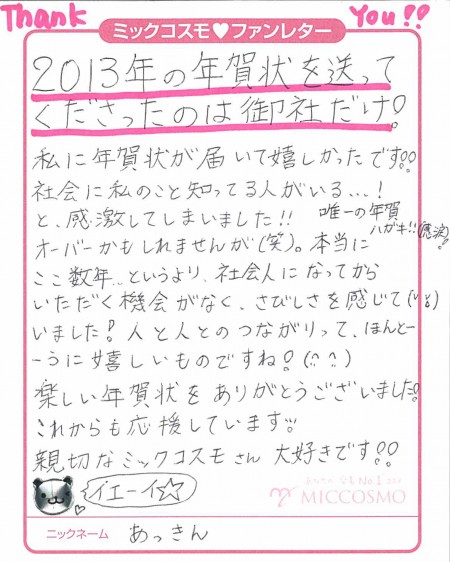 Thank You!!
ミックコスモ♥ファンレター
2013年の年賀状を送って
くださったのは御社だけ!
私に年賀状が届いて嬉しかったです!!
社会に私のこと知ってる人がいる…!
と、感激してしまいました!!
唯一の年賀
ハガキ!!(感涙)
オーバーかもしれませんが(笑)。本当に
ここ数年…というより、社会人になってから
いただく機会がなく、さびしさを感じて
いました!人と人とのつながりって、ほんとー
ーうに嬉しいものですね!(^^)
楽しい年賀状をありがとうございました!
これからも応援しています!!
親切なミックコスモさん 大好きです!!
イエーイ☆☆
みなさん 公言 No.1 コスメ
MICCOSMO
ニックネーム あっきん